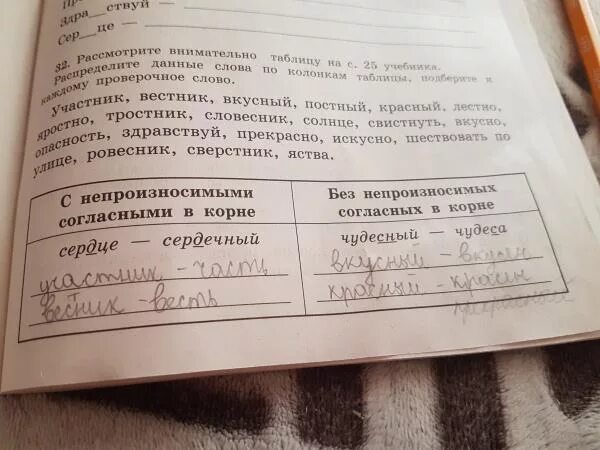 Здра__ствуй —
Сер__це —
32. Рассмотрите внимательно таблицу на с. 25 учебника.
Распределите данные слова по колонкам таблицы, подберите к
каждому проверочное слово.
Участник, вестник, вкусный, постный, красный, лестно,
яростно, тростник, словесник, солнце, свистнуть, вкусно,
опасность, здравствуй, прекрасно, искусно, шествовать по
улице, ровесник, сверстник, яства.
С непроизносимыми
согласными в корне
сердце — сердечный
участник - часть
вестник - весть
Без непроизносимых
согласных в корне
чудесный — чудеса
вкусный - вкусен
красный - красен